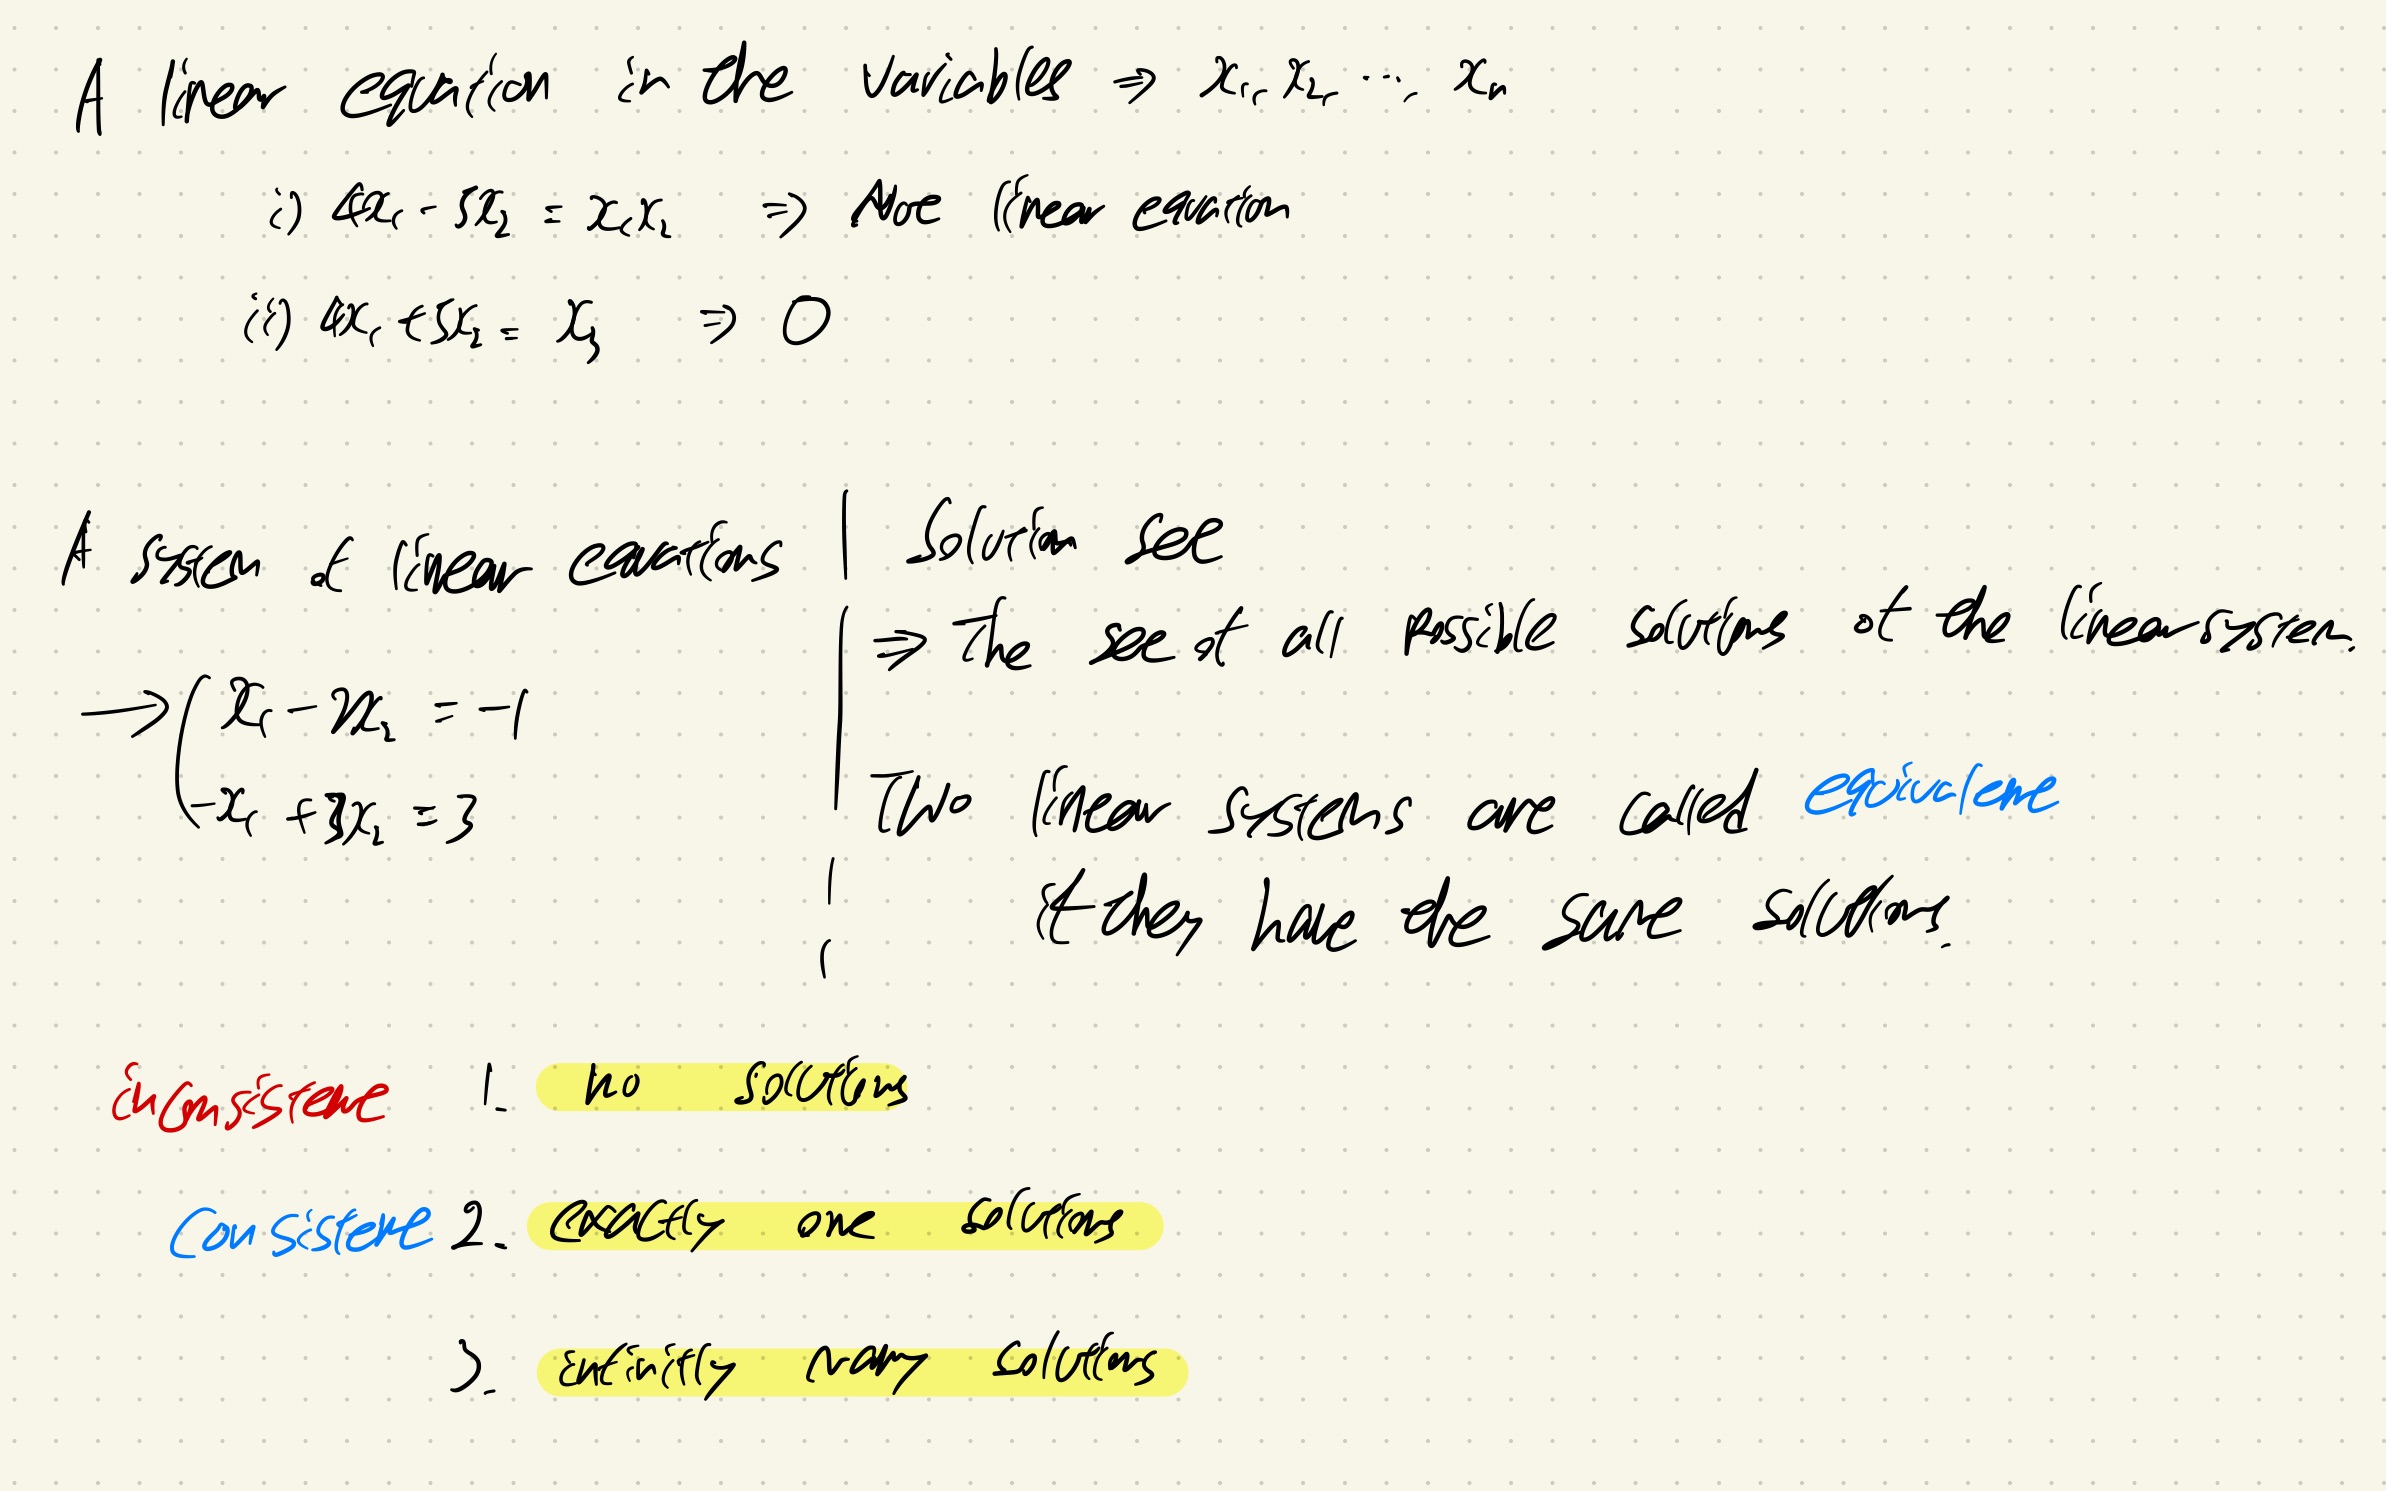 A linear equation in the variables ⇒ x₁, x₂, ..., xₙ
i) 4x₁ - 5x₂ = x₁x₂ ⇒ Not linear equation
ii) 4x₁ + 5x₂ = x₃ ⇒ O
A system of linear equations
→ x₁ - 2x₂ = -1
-x₁ + 3x₂ = 3
Solution set
⇒ The set of all possible solutions of the linear system.
Two linear systems are called equivalent
if they have the same solutions.
inconsistent 1. no solutions
consistent 2. exactly one solutions
3. infinitly many solutions